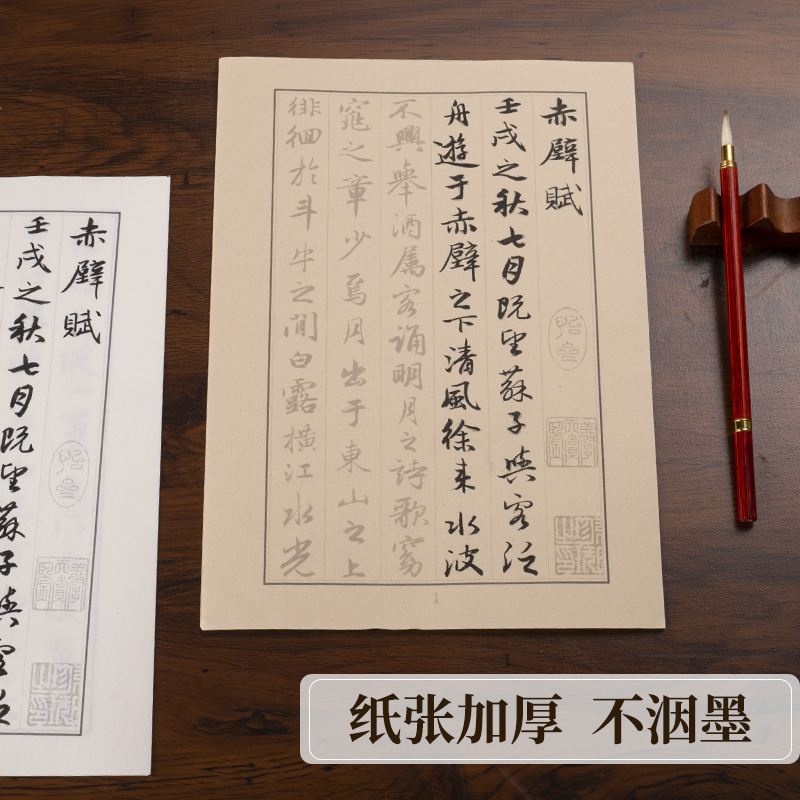 赤壁賦
壬戌之秋七月既望蘇子與客泛
舟遊于赤壁之下清風徐来水波
不興舉酒属客誦明月之詩歌窈
窕之章少焉月出于東山之上
徘徊於斗牛之間白露橫江水光
1
赤壁賦
壬戌之秋七月既望蘇子與客泛
纸张加厚 不洇墨